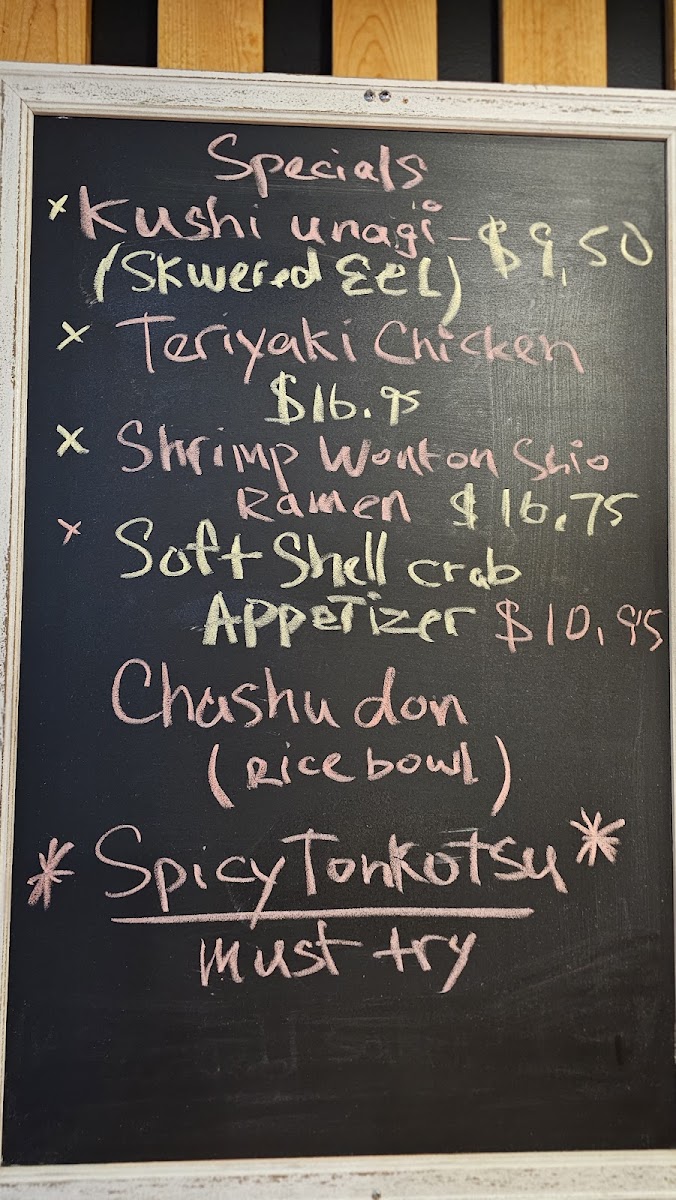 Specials
x Kushi unagi - $9.50
(Skwered EEL)
x Teriyaki Chicken
$16.95
x Shrimp Wonton Shio
Ramen $16.75
x Soft Shell crab
Appetizer $10.95
Chashu don
(Rice bowl)
* Spicy Tonkotsu *
must try